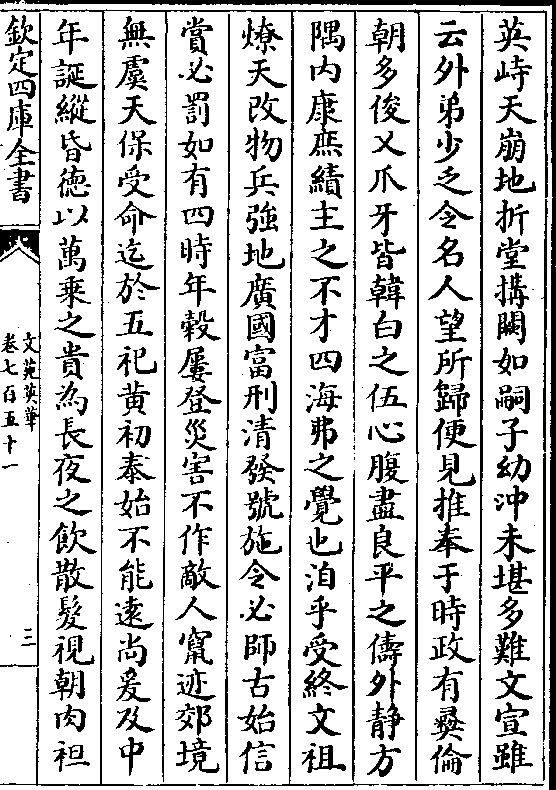 英峙天崩地折堂搆闕如嗣子幼沖未堪多難文宣雖
云外弟少乏令名人望所歸便見推奉于時政有彛倫
朝多俊乂爪牙皆韓白之伍心腹盡良平之儔外静方
隅内康庶績主之不才四海弗之覺也洎乎受終文祖
燎天改物兵強地廣國富刑清發號施令必師古始信
賞必罰如有四時年榖屢登災害不作敵人竄迹郊境
無虞天保受命迄於五祀黄初泰始不能逺尚爰及中
年誕縱昏德以萬乘之貴為長夜之飲散髮視朝肉袒
欽定四庫全書
文苑英華
卷七百五十一
三